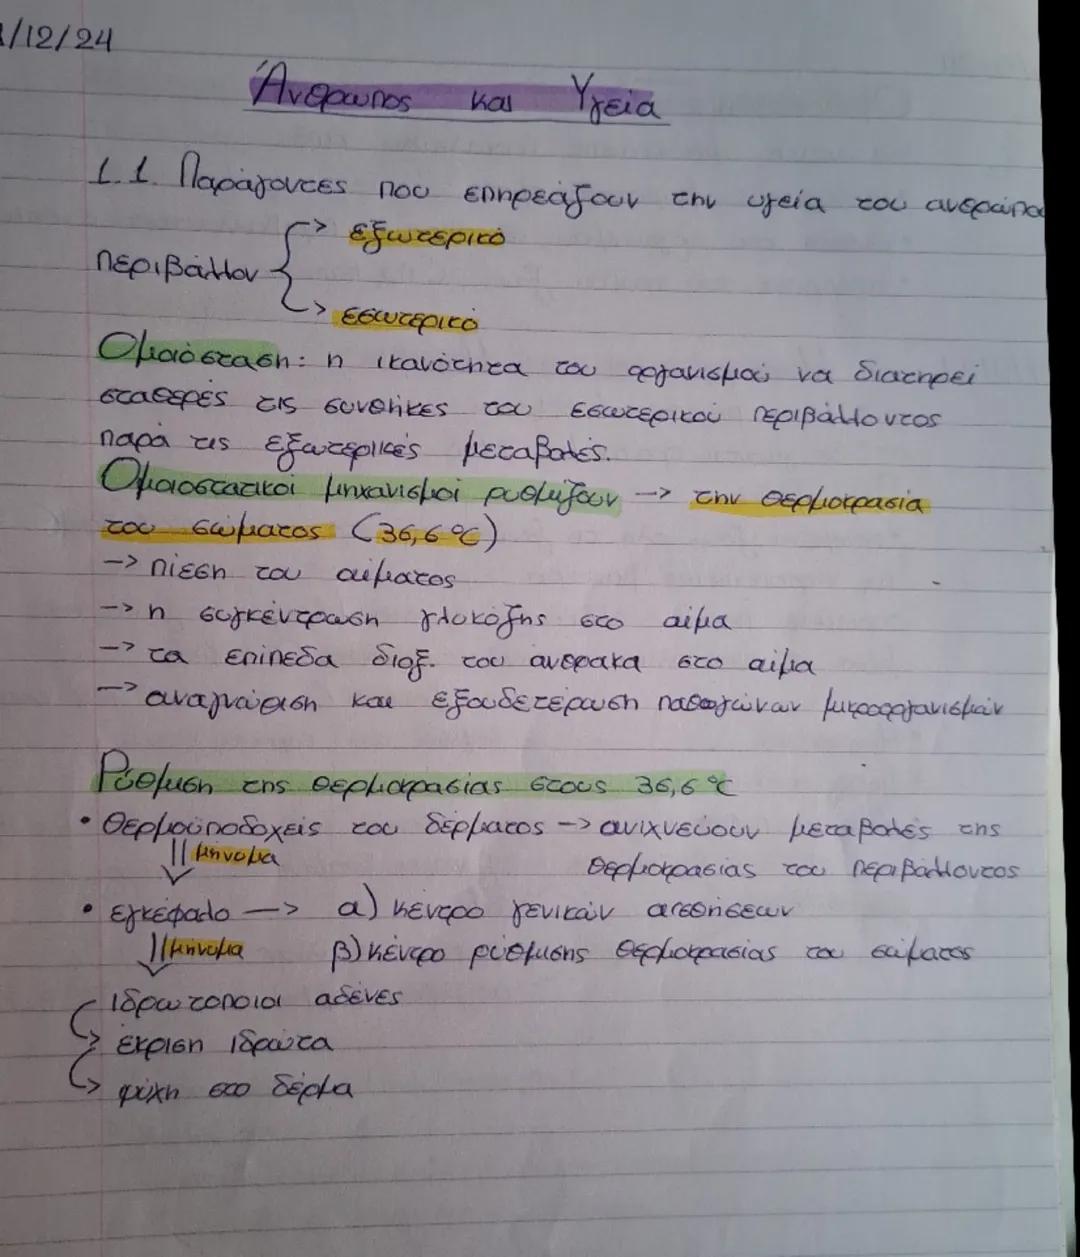 /12/24
Άνθρωπος και Υγεία
1.1. Παράγοντες που επηρεάζουν την υγεία του ανθρώπο
-> εξωτερικό
περιβάλλον
-> εσωτερικό
Ομοιόσταση: η ικανότητα του οργανισμού να διατηρεί
σταθερές τις συνθήκες του εσωτερικού περιβάλλοντος
παρά τις εξωτερικές μεταβολές.
Ομοιοστατικοί μηχανισμοί ρυθμίζουν --> την θερμοκρασία
του σώματος (36,6°C)
-> πίεση του αίματος
-> η συγκέντρωση γλυκόζης στο αίμα
-> τα επίπεδα διοξ. του άνθρακα στο αίμα
-> αναγνώριση και εξουδετέρωση παθογόνων μικροοργανισμών
Ρύθμιση της θερμοκρασίας στους 36,6°C
• Θερμοϋποδοχείς του δέρματος -> ανιχνεύουν μεταβολές της
μήνυμα θερμοκρασίας του περιβάλλοντος
• εγκέφαλο -> α) κέντρο γενικών αισθήσεων
μήνυμα β) κέντρο ρύθμισης θερμοκρασίας του σώματος
ιδρωτοποιοι αδένες
-> έκριση ιδρώτα
-> ψύχη στο δέρμα